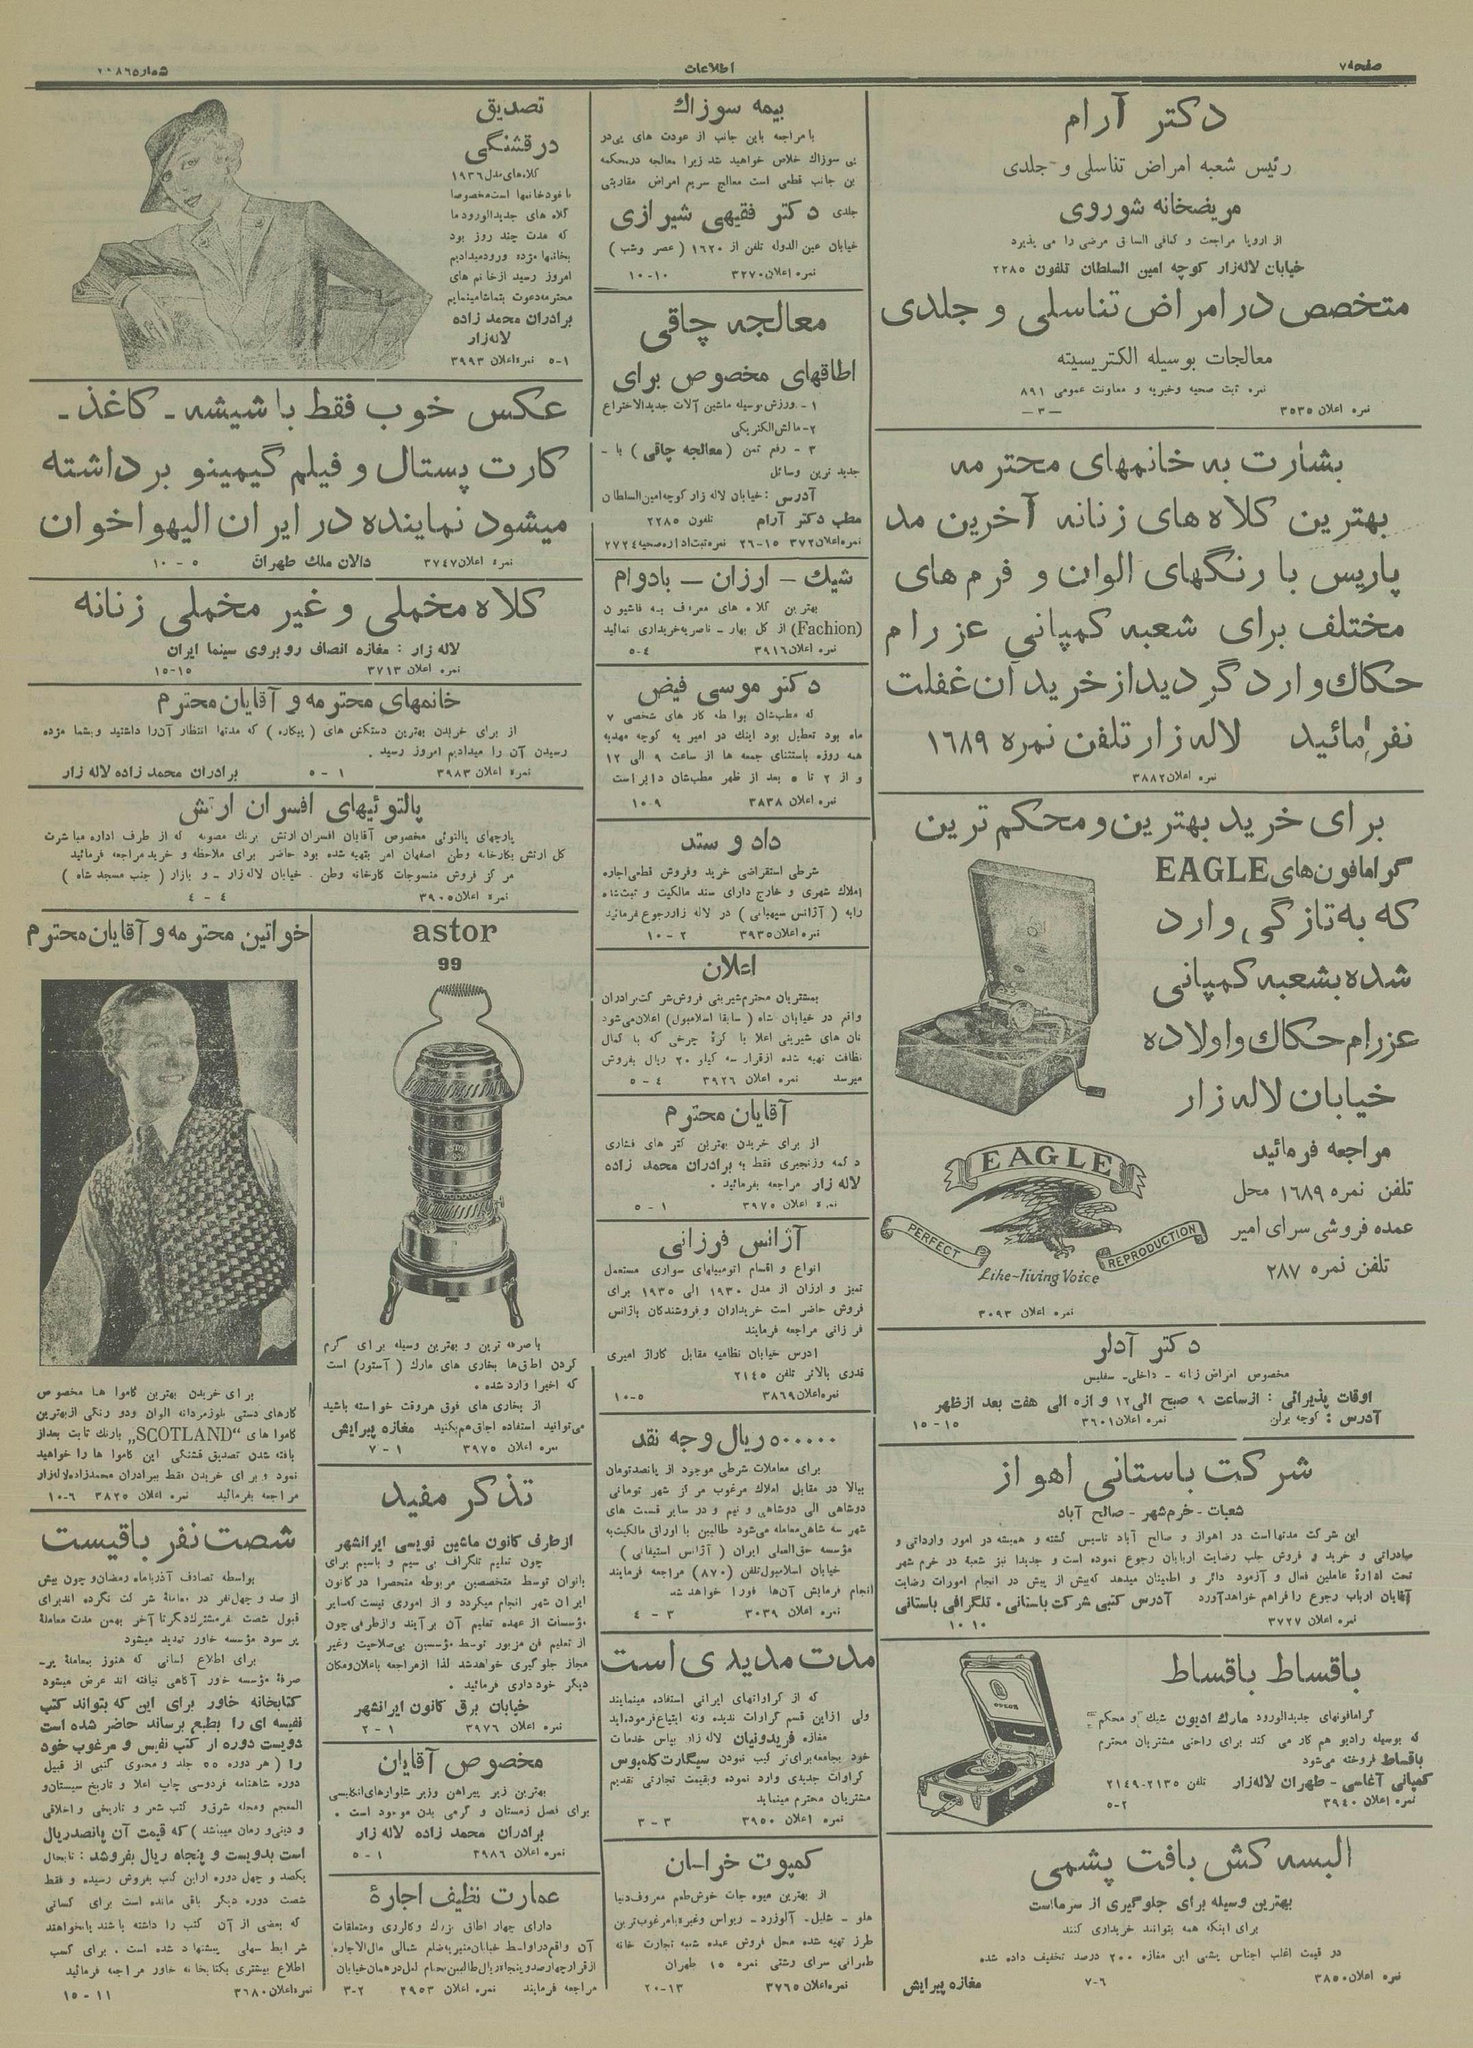 صفحه ۷
اطلاعات
دکتر آرام
رئیس شعبه امراض تناسلی و جلدی
مریضخانه شوروی
از اروپا مراجعت و کمافی السابق مرضی را می پذیرد
خیابان لاله‌زار کوچه امین السلطان تلفون ۲۲۸۵
متخصص در امراض تناسلی و جلدی
معالجات بوسیله الکتریسیته
نمره ثبت صحیه و خیریه و معاونت عمومی ۸۹۱
نمره اعلان ۳۵۳۵
— ۳ —
بشارت به خانمهای محترمه
بهترین کلاه های زنانه آخرین مد
پاریس با رنگهای الوان و فرم های
مختلف برای شعبه کمپانی عزرام
حکاک وارد گردید از خرید آن غفلت
نفرمائید لاله زار تلفن نمره ۱۶۸۹
نمره اعلان ۳۸۸۲
برای خرید بهترین و محکم ترین
گرامافون‌های EAGLE
که به تازگی وارد
شده بشعبه کمپانی
عزرام حکاک و اولاده
خیابان لاله زار
مراجعه فرمائید
تلفن نمره ۱۶۸۹ محل
عمده فروشی سرای امیر
تلفن نمره ۲۸۷
EAGLE
PERFECT
REPRODUCTION
Like-living Voice
نمره اعلان ۳۰۹۳
دکتر آدلر
مخصوص امراض زنانه - داخلی - سفلیس
اوقات پذیرائی : از ساعت ۹ صبح الی ۱۲ و از ۵ الی هفت بعد از ظهر
آدرس : کوچه برلن نمره اعلان ۳۶۰۱ ۱۵ - ۱۵
شرکت باستانی اهواز
شعبات - خرم‌شهر - صالح آباد
این شرکت مدتها است در اهواز و صالح آباد تاسیس گشته و همیشه در امور وارداتی و
صادراتی و خرید و فروش جلب رضایت اربابان رجوع نموده است و جدیدا نیز شعبه در خرم شهر
تحت ادارهٔ عاملین فعال و آزمود دائر و اطمینان میدهد که بیش از پیش در انجام امورات رضایت
آقایان ارباب رجوع را فراهم خواهد آورد آدرس کتبی شرکت باستانی . تلگرافی باستانی
نمره اعلان ۳۷۲۷ ۱۰ ۱۰
باقساط باقساط
گرامافونهای جدیدالورود مارک ادیون شیک و محکم
که بوسیله رادیو هم کار می کند برای راحتی مشتریان محترم
باقساط فروخته می‌شود
کمپانی آغاسی - طهران لاله‌زار تلفن ۲۱۳۵-۲۱۴۹
نمره اعلان ۳۹۴۰ ۵-۲
ODEON
البسه کش بافت پشمی
بهترین وسیله برای جلوگیری از سرماست
برای اینکه همه بتوانند خریداری کنند
در قیمت اغلب اجناس پشمی این مغازه ۲۰۰ درصد تخفیف داده شده
نمره اعلان ۳۸۵۰ ۷-۶ مغازه پیرایش
بیمه سوزاک
با مراجعه باین جانب از عودت های پی‌در
پی سوزاک خلاص خواهید شد زیرا معالجه در محکمه
این جانب قطعی است معالج سریع امراض مقاربتی
جلدی دکتر فقیهی شیرازی
خیابان عین الدوله تلفن از ۱۶۲۰ ( عصر و شب )
نمره اعلان ۳۲۷۰ ۱۰-۱۰
معالجه چاقی
اطاقهای مخصوص برای
۱ - ورزش بوسیله ماشین آلات جدیدالاختراع
۲- مالش الکتریکی
۳ - رفع سمن (معالجه چاقی) با -
جدید ترین وسائل
آدرس : خیابان لاله زار کوچه امین السلطان
مطب دکتر آرام تلفون ۲۲۸۵
نمره اعلان ۳۷۲ ۱۵-۲۶ نمره ثبت اداره صحیه ۲۷۲۴
شیک — ارزان — بادوام
بهترین کلاه های معروف به فاشیون
(Fachion) از گل بهار - ناصریه خریداری نمائید
نمره اعلان ۳۹۱۶ ۵-۴
دکتر موسی فیض
که مطب‌شان بواسطه کار های شخصی ۷
ماه بود تعطیل بود اینک در امیر یه کوچه مهدیه
همه روزه باستثنای جمعه ها از ساعت ۹ الی ۱۲
و از ۲ تا ۵ بعد از ظهر مطب‌شان دایر است
نمره اعلان ۳۸۳۸ ۱۰-۹
داد و ستد
شرطی استقراضی خرید و فروش قطعی اجاره
املاک شهری و خارج دارای سند مالکیت و ثبت شده
را به ( آژانس سپهبانی ) در لاله زار رجوع فرمائید
نمره اعلان ۳۹۳۵ ۱۰-۲
اعلان
بمشتریان محترم شیرینی فروش شرکت برادران
واقع در خیابان شاه ( سابقا اسلامبول) اعلان می‌شود
نان های شیرینی اعلا با کرهٔ چرخی که با کمال
نظافت تهیه شده از قرار سه کیلو ۲۰ ریال بفروش
میرسد نمره اعلان ۳۹۲۶ ۵-۴
آقایان محترم
از برای خریدن بهترین کتر های فشاری
دکمه و زنجیری فقط به برادران محمد زاده
لاله زار مراجعه بفرمائید .
نمره اعلان ۳۹۷۵ ۵-۱
آژانس فرزانی
انواع و اقسام اتومبیلهای سواری مستعمل
تمیز و ارزان از مدل ۱۹۳۰ الی ۱۹۳۵ برای
فروش حاضر است خریداران و فروشندگان باژانس
فرزانی مراجعه فرمایند
ادرس خیابان نظامیه مقابل گاراژ امیری
قدری بالاتر تلفن ۲۱۴۵
نمره اعلان ۳۸۶۹ ۱۰-۵
۵۰۰۰۰۰ ریال وجه نقد
برای معاملات شرطی موجود از پانصد تومان
ببالا در مقابل املاک مرغوب مرکز شهر تومانی
دوشاهی الی دوشاهی و نیم و در سایر قسمت های
شهر سه شاهی معامله می‌شود طالبین با اوراق مالکیت به
مؤسسه حق‌العملی ایران ( آژانس استیفانی )
خیابان اسلامبول تلفن (۸۷۰) مراجعه فرمایند
انجام فرمایش آن‌ها فورا خواهد شد
نمره اعلان ۳۰۳۹ ۴-۳
مدت مدیدی است
که از کراواتهای ایرانی استفاده مینمایند
ولی از این قسم کراوات ندیده ونه ابتیاع فرموده‌اید
مغازه فریدونیان لاله زار بپاس خدمات
خود بجامعه برای ترکیب نمودن سیگارت کلمبوس
کراوات جدیدی وارد نموده و بقیمت تجارتی تقدیم
مشتریان محترم مینماید
نمره اعلان ۳۹۵۰ ۳-۳
کمپوت خراسان
از بهترین میوه جات خوش‌طعم معروف دنیا
هلو - شلیل - آلوزرد - ریواس وغیره با مرغوب‌ترین
طرز تهیه شده محل فروش عمده شعبه تجارت خانه
طهرانی سرای رشتی نمره ۱۵ طهران
نمره اعلان ۳۷۶۵ ۲۰-۱۳
تصدیق
در قشنگی
کلاه‌های مدل ۱۹۳۶
با خود خانمها است مخصوصا
کلاه های جدیدالورود ما
که مدت چند روز بود
بخانمها مژده ورود میدادیم
امروز رسید از خانم های
محترمه دعوت بتماشا مینمایم
برادران محمد زاده
لاله‌زار
۵-۱ نمره اعلان ۳۹۹۳
عکس خوب فقط با شیشه - کاغذ -
کارت پستال و فیلم گیمینو برداشته
میشود نماینده در ایران الیهو اخوان
نمره اعلان ۳۷۴۷ دالان ملک طهران ۱۰ - ۵
کلاه مخملی و غیر مخملی زنانه
لاله زار : مغازه انصاف روبروی سینما ایران
نمره اعلان ۳۷۱۳ ۱۵-۱۵
خانمهای محترمه و آقایان محترم
از برای خریدن بهترین دستکش های ( پیکاره ) که مدتها انتظار آن‌را داشتید وبشما مژده
رسیدن آن را میدادیم امروز رسید .
نمره اعلان ۳۹۸۳ ۵-۱ برادران محمد زاده لاله زار
پالتوئیهای افسران ارتش
پارچهای پالتوئی مخصوص آقایان افسران ارتش برنک مصوبه که از طرف اداره مباشرت
کل ارتش بکارخانه وطن اصفهان امر بتهیه شده بود حاضر برای ملاحظه و خرید مراجعه فرمائید
مرکز فروش منسوجات کارخانه وطن . خیابان لاله زار - و بازار ( جنب مسجد شاه )
نمره اعلان ۳۹۰۵ ۴-۴
astor
99
با صرفه ترین و بهترین وسیله برای گرم
کردن اطاق‌ها بخاری های مارک ( آستور) است
که اخیرا وارد شده .
از بخاری های فوق هر وقت خواسته باشید
می‌توانید استفاده اجاق هم بکنید مغازه پیرایش
نمره اعلان ۳۹۷۵ ۷-۱
تذکر مفید
از طرف کانون ماشین نویسی ایرانشهر
چون تعلیم تلگراف بی سیم و باسیم برای
بانوان توسط متخصصین مربوطه منحصرا در کانون
ایران شهر انجام میگردد و از اموری نیست که سایر
مؤسسات از عهده تعلیم آن برآیند و از طرفی چون
از تعلیم فن مزبور توسط مؤسسین بی‌صلاحیت وغیر
مجاز جلوگیری خواهد شد لذا از مراجعه باعلان و مکان
دیگر خودداری فرمائید .
خیابان برق کانون ایرانشهر
نمره اعلان ۳۹۷۶ ۲-۱
مخصوص آقایان
بهترین زیر پیراهن وزیر شلوارهای انگلیسی
برای فصل زمستان و گرمی بدن موجود است .
برادران محمد زاده لاله زار
نمره اعلان ۳۹۸۶ ۵-۱
عمارت نظیف اجارهٔ
دارای چهار اطاق بزرگ و گالری و متعلقات
آن واقع در اواسط خیابان منیریه ضلع شمالی مال الاجاره
از قرار چهار صد و پنجاه ریال طالبین بحمام لعل در همان خیابان
مراجعه فرمایند نمره اعلان ۲۹۵۳ ۳-۲
خواتین محترمه و آقایان محترم
برای خریدن بهترین کاموا ها مخصوص
کارهای دستی بلوز مردانه الوان ودو رنگی از بهترین
کاموا های "SCOTLAND" بارنگ ثابت بعد از
بافته شدن تصدیق قشنگی این کاموا ها را خواهید
نمود و برای خریدن فقط ببرادران محمدزاده لاله‌زار
مراجعه بفرمائید نمره اعلان ۳۸۲۵ ۱۰-۶
شصت نفر باقیست
بواسطه تصادف آذر با ماه رمضان و چون بیش
از صد و چهل نفر در معاملهٔ شرکت نکرده اند برای
قبول شصت نفر مشترک دیگر تا آخر بهمن مدت معاملهٔ
پر سود مؤسسه خاور تمدید میشود
برای اطلاع کسانی که هنوز بمعاملهٔ پر-
صرفهٔ مؤسسه خاور آگاهی نیافته اند عرض میشود
کتابخانه خاور برای این که بتواند کتب
نفیسه ای را بطبع برساند حاضر شده است
دویست دوره از کتب نفیس و مرغوب خود
را ( هر دوره ۵۵ جلد و محتوی کتبی از قبیل
دوره شاهنامه فردوسی چاپ اعلا و تاریخ سیستان و
المعجم و مجله شرق و کتب شعر و تاریخی و اخلاقی
و دینی و رمان میباشد ) که قیمت آن پانصد ریال
است بدویست و پنجاه ریال بفروشد : تابحال
یکصد و چهل دوره از این کتب بفروش رسیده و فقط
شصت دوره دیگر باقی مانده است برای کسانی
که بعضی از آن کتب را داشته باشند یا بخواهند
شرایط سهلی پیشنهاد شده است . برای کسب
اطلاع بیشتری بکتابخانه خاور مراجعه فرمائید
نمره اعلان ۳۶۸۰ ۱۵ - ۱۱